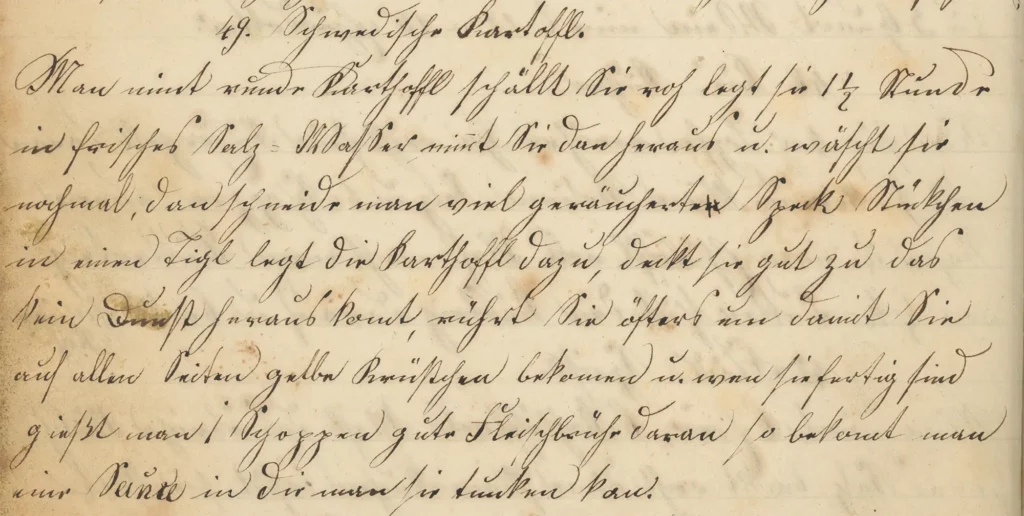 49. Schwedische Kartoffl.
Man nimt runde Karthoffl schällt Sie roh legt sie 1½ Stunde
in frisches Salz=Wasser nimt Sie dan heraus u. wäscht sie
nochmal, dan schneide man viel geräucherten Speck Stükchen
in einen Tigl legt die Karthoffl dazu, deckt sie gut zu das
kein Dunst heraus komt, rührt Sie öfters um damit Sie
auf allen Seiten gelbe Krüstchen bekomen u. wen sie fertig sind
gießt man 1 Schoppen gute Fleischbrühe daran so bekomt man
eine Sauce in die man sie tunken kan.